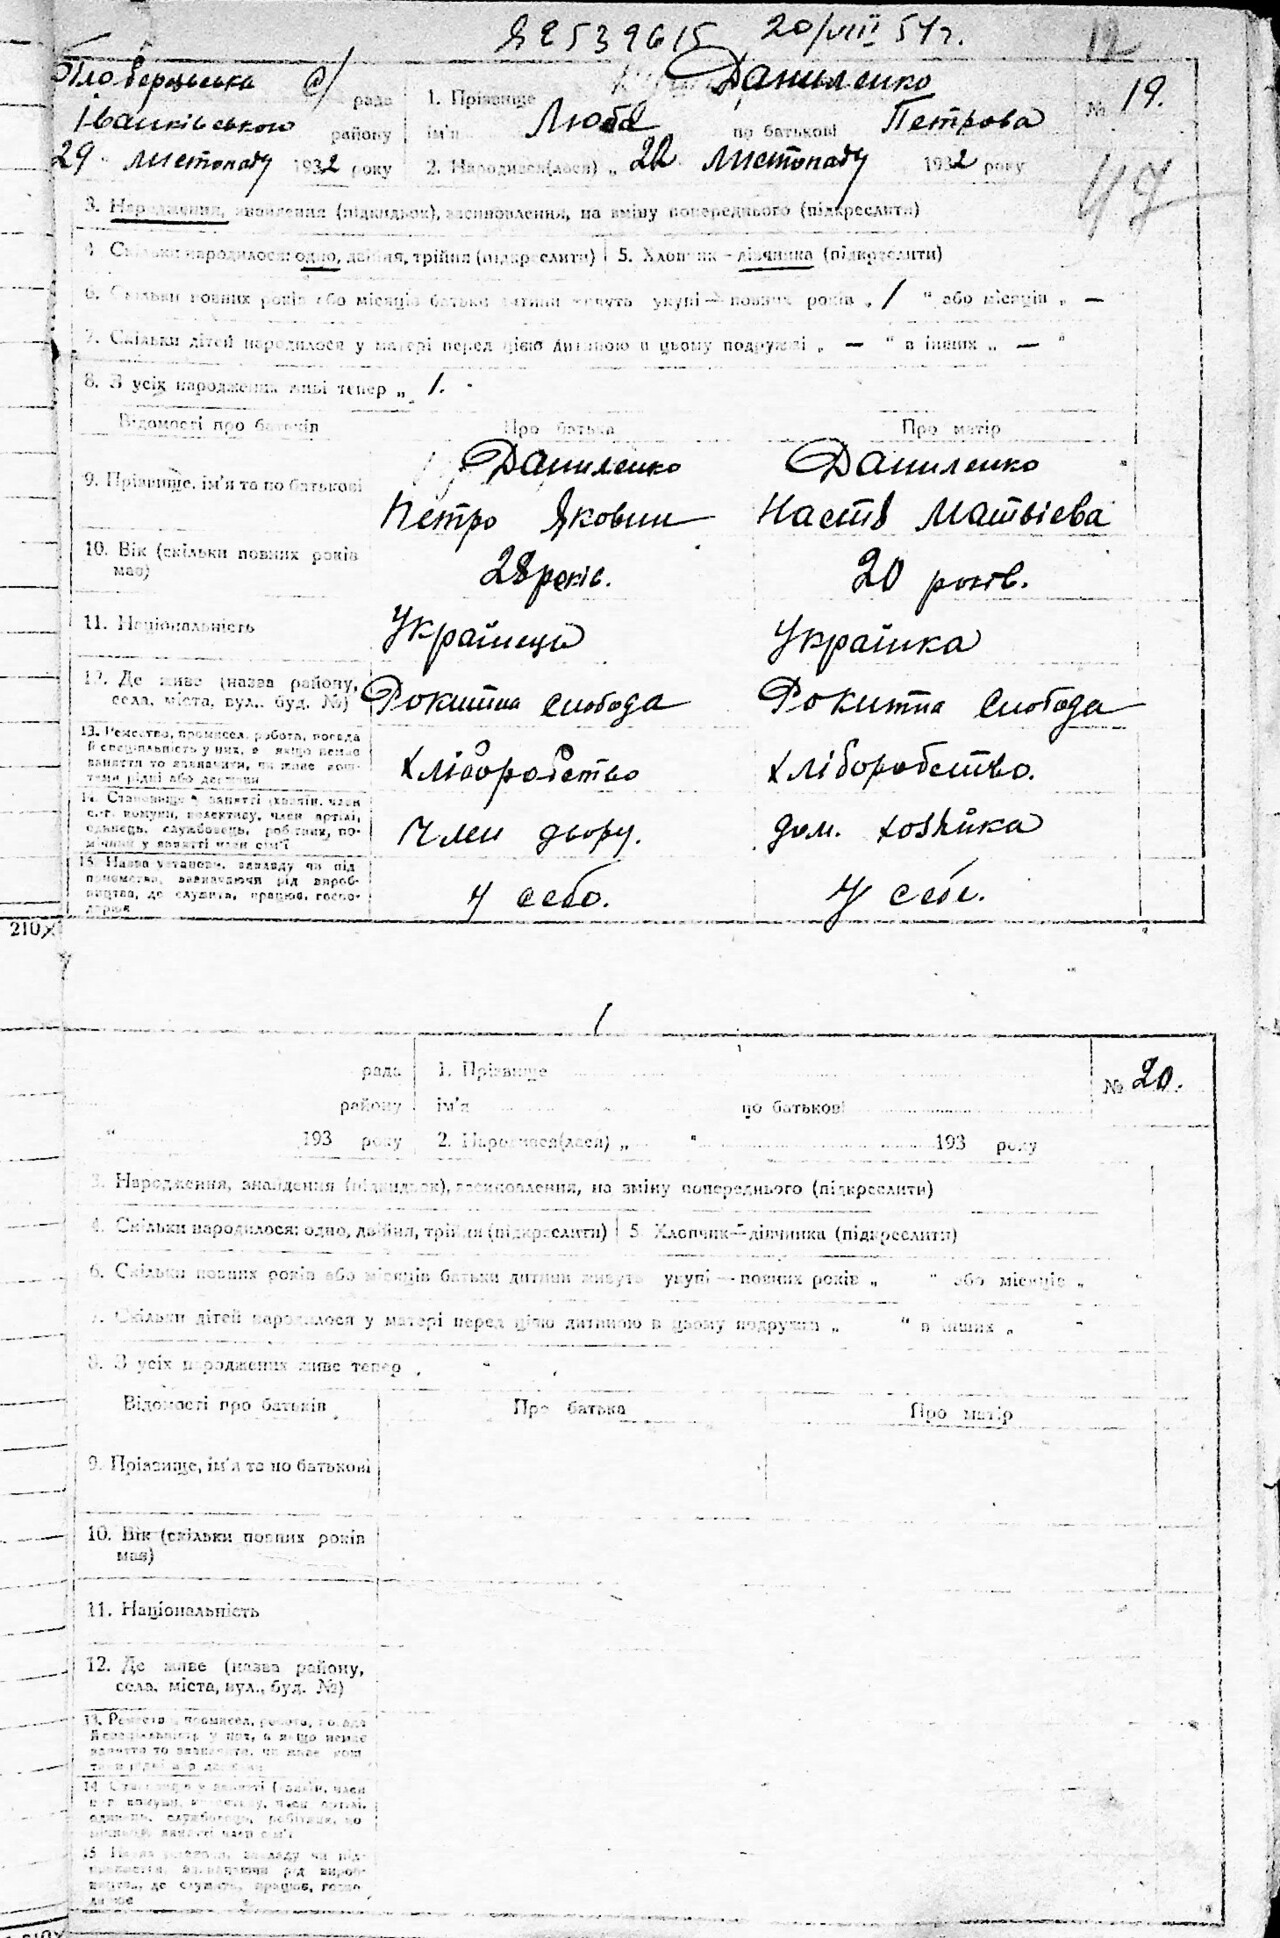 20/VIII 54 г.
12
с/ рада
1. Прізвище Даниленко
№ 19.
Іванківського району
ім'я Люба по батькові Петрова
29 " листопаду 1932 року
2. Народився(лася) „ 22 листопаду 1932 року
47
3. Народження, знайдення (підкидьок), засиновлення, на зміну попереднього (підкреслити)
4. Скільки народилося: одно, двійня, трійня (підкреслити) 5. Хлопчик — дівчинка (підкреслити)
6. Скільки повних років або місяців батьки дитини живуть укупі — повних років „ 1 " або місяців „ —
7. Скільки дітей народилося у матері перед цією дитиною в цьому подружжі „ — " в інших „ — "
8. З усіх народжених живі тепер „ 1.
Відомості про батьків Про батька Про матір
Даниленко Даниленко
9. Прізвище, ім'я та по батькові
Петро Якович Настя Матвієва
10. Вік (скільки повних років
має)
28 років. 20 років.
11. Національність Українець Українка
12. Де живе (назва району,
села, міста, вул., буд. №) Рокитна Слобода Рокитна Слобода
13. Ремество, промисел, робота, посада
й спеціальність у них, а якщо немає
заняття то зазначити, чи живе кош-
тами рідні або держави
Хліборобство Хліборобство.
14. Становище в занятті (хазяїн, член
с.-г. комуни, колективу, член артілі,
одинець, службовець, робітник, по-
мічний у занятті член сім'ї
Член двору. дом. хозяйка
15. Назва установи, закладу чи під-
приємства, зазначаючи рід вироб-
ництва, де служить, працює, госпо-
дарює
у себе. у себе.
210
рада 1. Прізвище № 20.
району ім'я по батькові
" 193 року 2. Народився(лася) „ " 193 року
3. Народження, знайдення (підкидьок), засиновлення, на зміну попереднього (підкреслити)
4. Скільки народилося: одно, двійня, трійня (підкреслити) 5. Хлопчик — дівчинка (підкреслити)
6. Скільки повних років або місяців батьки дитини живуть укупі — повних років „ " або місяців „ "
7. Скільки дітей народилося у матері перед цією дитиною в цьому подружжі „ " в інших „ "
8. З усіх народжених живе тепер „ "
Відомості про батьків Про батька Про матір
9. Прізвище, ім'я та по батькові
10. Вік (скільки повних років
має)
11. Національність
12. Де живе (назва району,
села, міста, вул., буд. №)
13. Ремество, промисел, робота, посада
й спеціальність у них, а якщо немає
заняття то зазначити, чи живе кош-
тами рідні або держави
14. Становище у занятті (хазяїн, член
с.-г. комуни, колективу, член артілі,
одинець, службовець, робітник, по-
мічний у занятті член сім'ї
15. Назва установи, закладу чи під-
приємства, зазначаючи рід вироб-
ництва, де служить, працює, госпо-
дарює